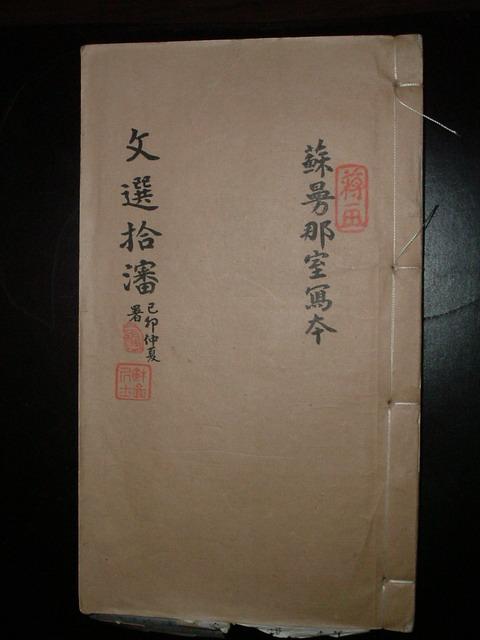 蘇曼那室寫本
文選拾瀋
己卯仲夏
署